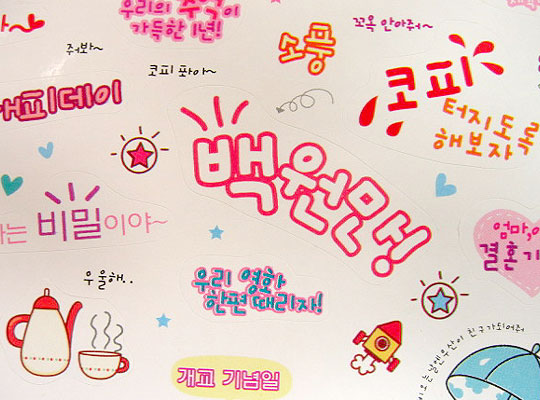 우리의 추억이
가득한 1년!
꼬옥 안아줘~
줘봐~
소풍
코피 퐛아~
코피
터지도록
해보자
해피데이
백원만!
는 비밀이야~
엄마,
결혼기
우울해..
우리 영화
한편 때리자!
개교 기념일
우산이 친구가되어줘